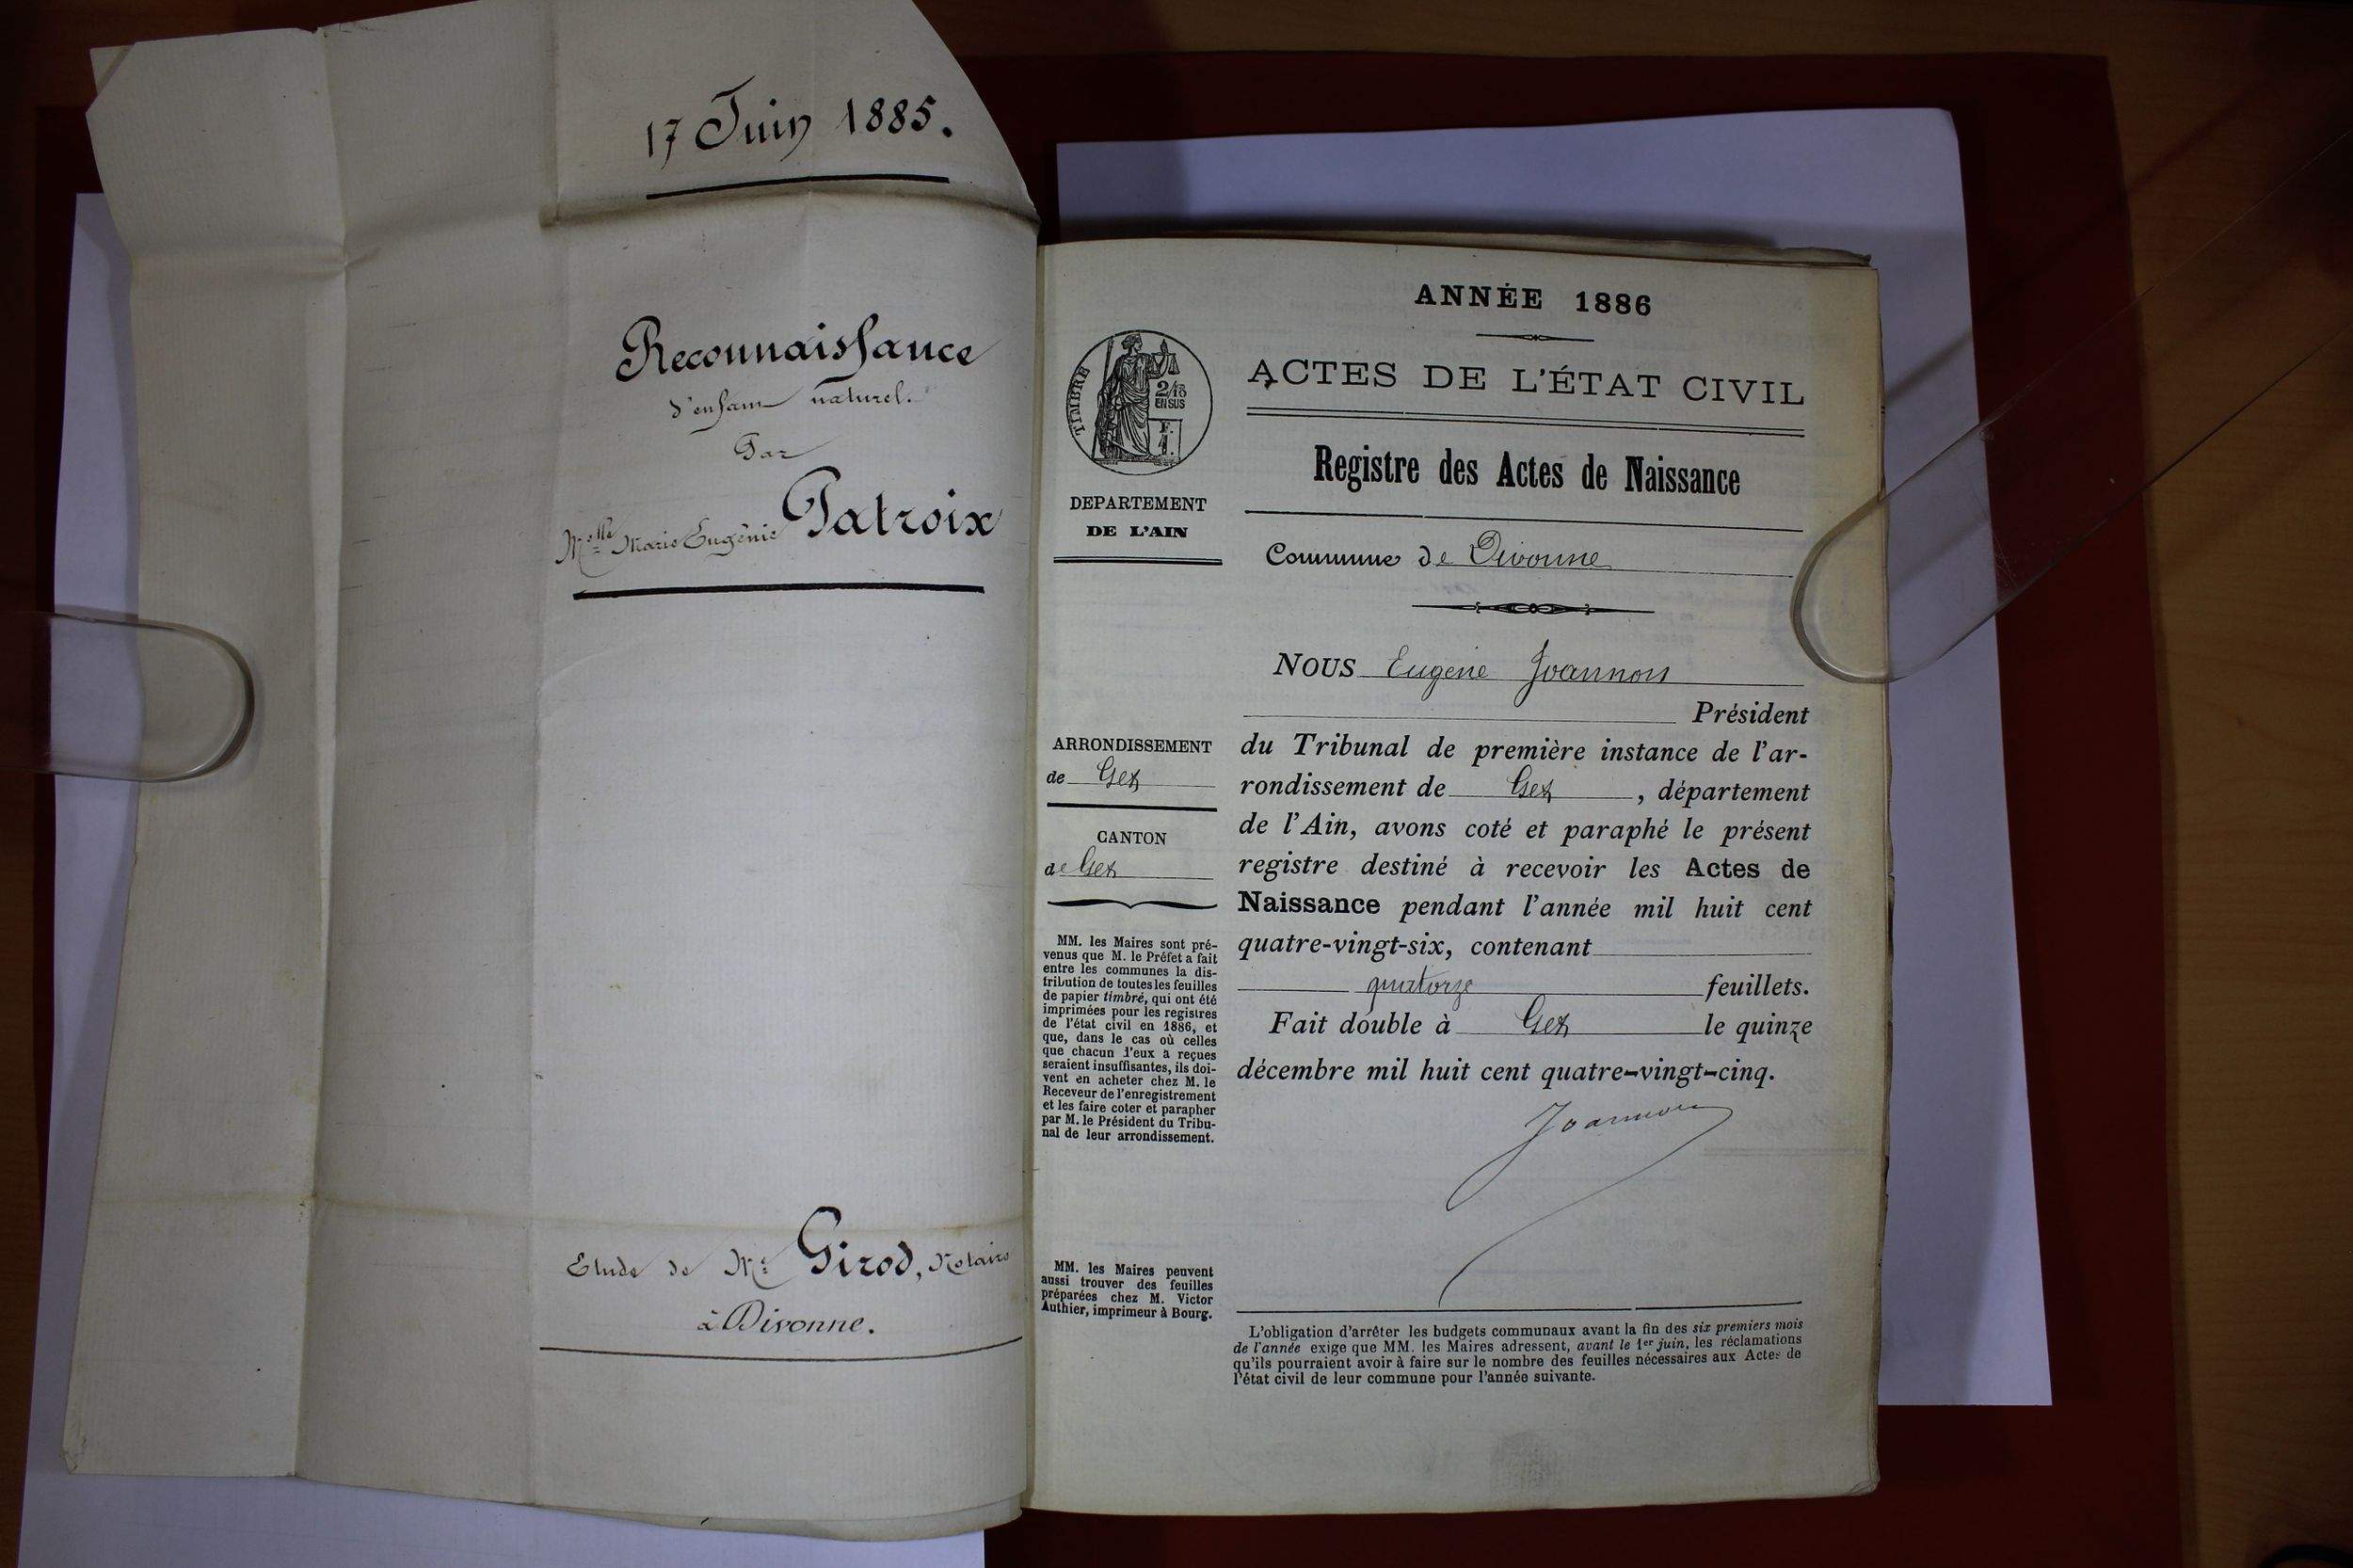 17 Juin 1885.
Reconnaissance
d'enfant naturel.
Par
Melle Marie Eugénie Patroix
Etude de Me Girod, Notaire
à Divonne.
ANNÉE 1886
ACTES DE L'ÉTAT CIVIL
Registre des Actes de Naissance
Commune de Divonne
TIMBRE
2/10
EN SUS
F.
1.
DEPARTEMENT
DE L'AIN
ARRONDISSEMENT
de Gex
CANTON
de Gex
MM. les Maires sont pré-
venus que M. le Préfet a fait
entre les communes la dis-
tribution de toutes les feuilles
de papier timbré, qui ont été
imprimées pour les registres
de l'état civil en 1886, et
que, dans le cas où celles
que chacun d'eux a reçues
seraient insuffisantes, ils doi-
vent en acheter chez M. le
Receveur de l'enregistrement
et les faire coter et parapher
par M. le Président du Tribu-
nal de leur arrondissement.
MM. les Maires peuvent
aussi trouver des feuilles
préparées chez M. Victor
Authier, imprimeur à Bourg.
NOUS Eugène Joannon
Président
du Tribunal de première instance de l'ar-
rondissement de Gex, département
de l'Ain, avons coté et paraphé le présent
registre destiné à recevoir les Actes de
Naissance pendant l'année mil huit cent
quatre-vingt-six, contenant
quatorze feuillets.
Fait double à Gex le quinze
décembre mil huit cent quatre-vingt-cinq.
Joannon
L'obligation d'arrêter les budgets communaux avant la fin des six premiers mois
de l'année exige que MM. les Maires adressent, avant le 1er juin, les réclamations
qu'ils pourraient avoir à faire sur le nombre des feuilles nécessaires aux Actes de
l'état civil de leur commune pour l'année suivante.